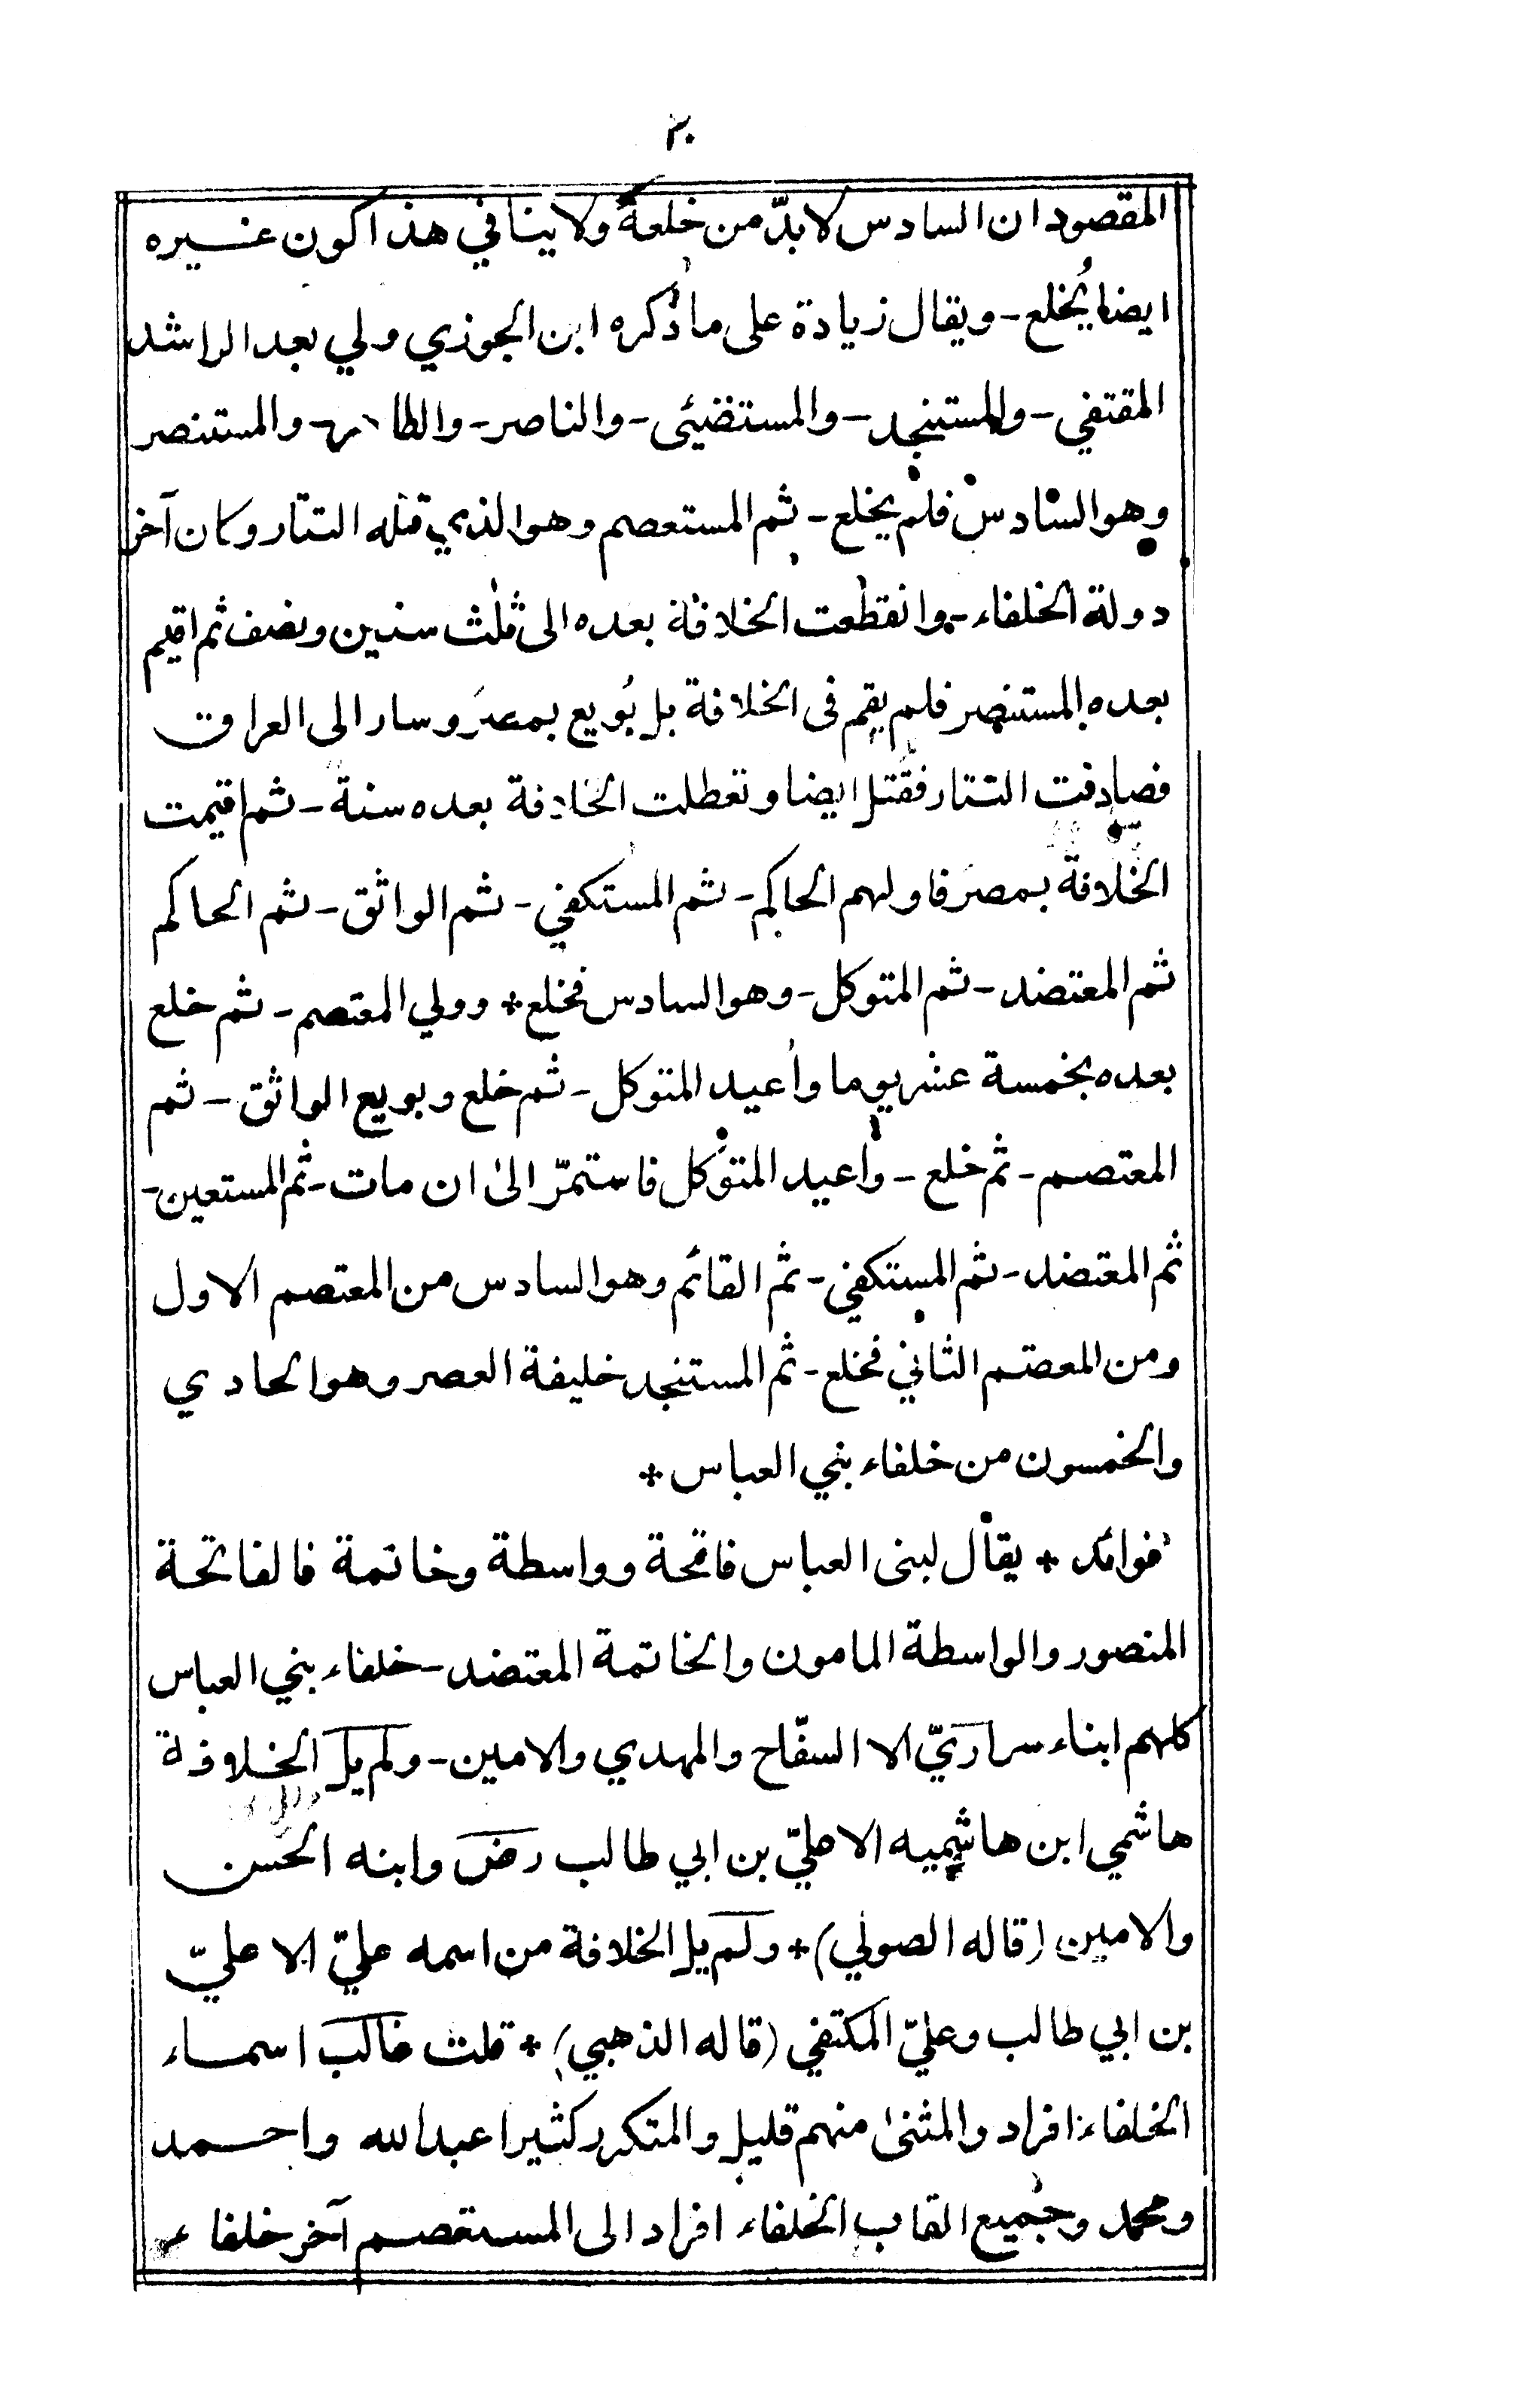 ٢٠
المقصود ان السادس لابدّ من خلعه ولا ينافي هذا كون غيره
ايضا يُخلع - ويقال زيادة على ما ذكره ابن الجوزي ولي بعد الراشد
المقتفي - والمستنجد - والمستضيئي - والناصر - والظاهر - والمستنصر
وهو السادس فلم يخلع - ثم المستعصم وهو الذي قتله التتار وكان آخر
دولة الخلفاء - وانقطعت الخلافة بعده الى ثلٰث سنين ونصف ثم اقيم
بعده المستنصر فلم يقم فى الخلافة بل بُويع بمصر وسار الى العراق
فصادفت التتار فقُتل ايضا وتعطلت الخلافة بعده سنة - ثم اقيمت
الخلافة بمصر فاولهم الحاكم - ثم المستكفي - ثم الواثق - ثم الحاكم
ثم المعتضد - ثم المتوكل - وهو السادس فخلع * وولي المعتصم - ثم خلع
بعده بخمسة عشر يوما واُعيد المتوكل - ثم خلع وبويع الواثق - ثم
المعتصم - ثم خلع - واُعيد المتوكل فاستمرّ الىٰ ان مات - ثم المستعين -
ثم المعتضد - ثم المستكفي - ثم القائم وهو السادس من المعتصم الاول
ومن المعصتم الثاني فخلع - ثم المستنجد خليفة العصر وهو الحادي
والخمسون من خلفاء بني العباس *
فوائد * يقال لبنى العباس فاتحة وواسطة وخاتمة فالفاتحة
المنصور والواسطة المامون والخاتمة المعتضد - خلفاء بني العباس
كلهم ابناء سراريّ الا السفّاح والمهدي والامين - ولم يل الخلافة
هاشمي ابن هاشميه الا عليّ بن ابي طالب رض وابنه الحسن
والامين (قاله الصولي) * ولم يل الخلافة من اسمه عليّ الا عليّ
بن ابي طالب وعليّ المكتفي (قاله الذهبي) * قلت غالب اسماء
الخلفاء افراد والمثنىٰ منهم قليل والمتكرر كثيرا عبدالله واحمد
ومحمد وجميع القاب الخلفاء افراد الى المستعصم آخر خلفاء